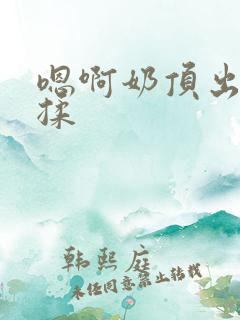 嗯啊奶頂出
揉
韩熙庭
未经同意禁止转载